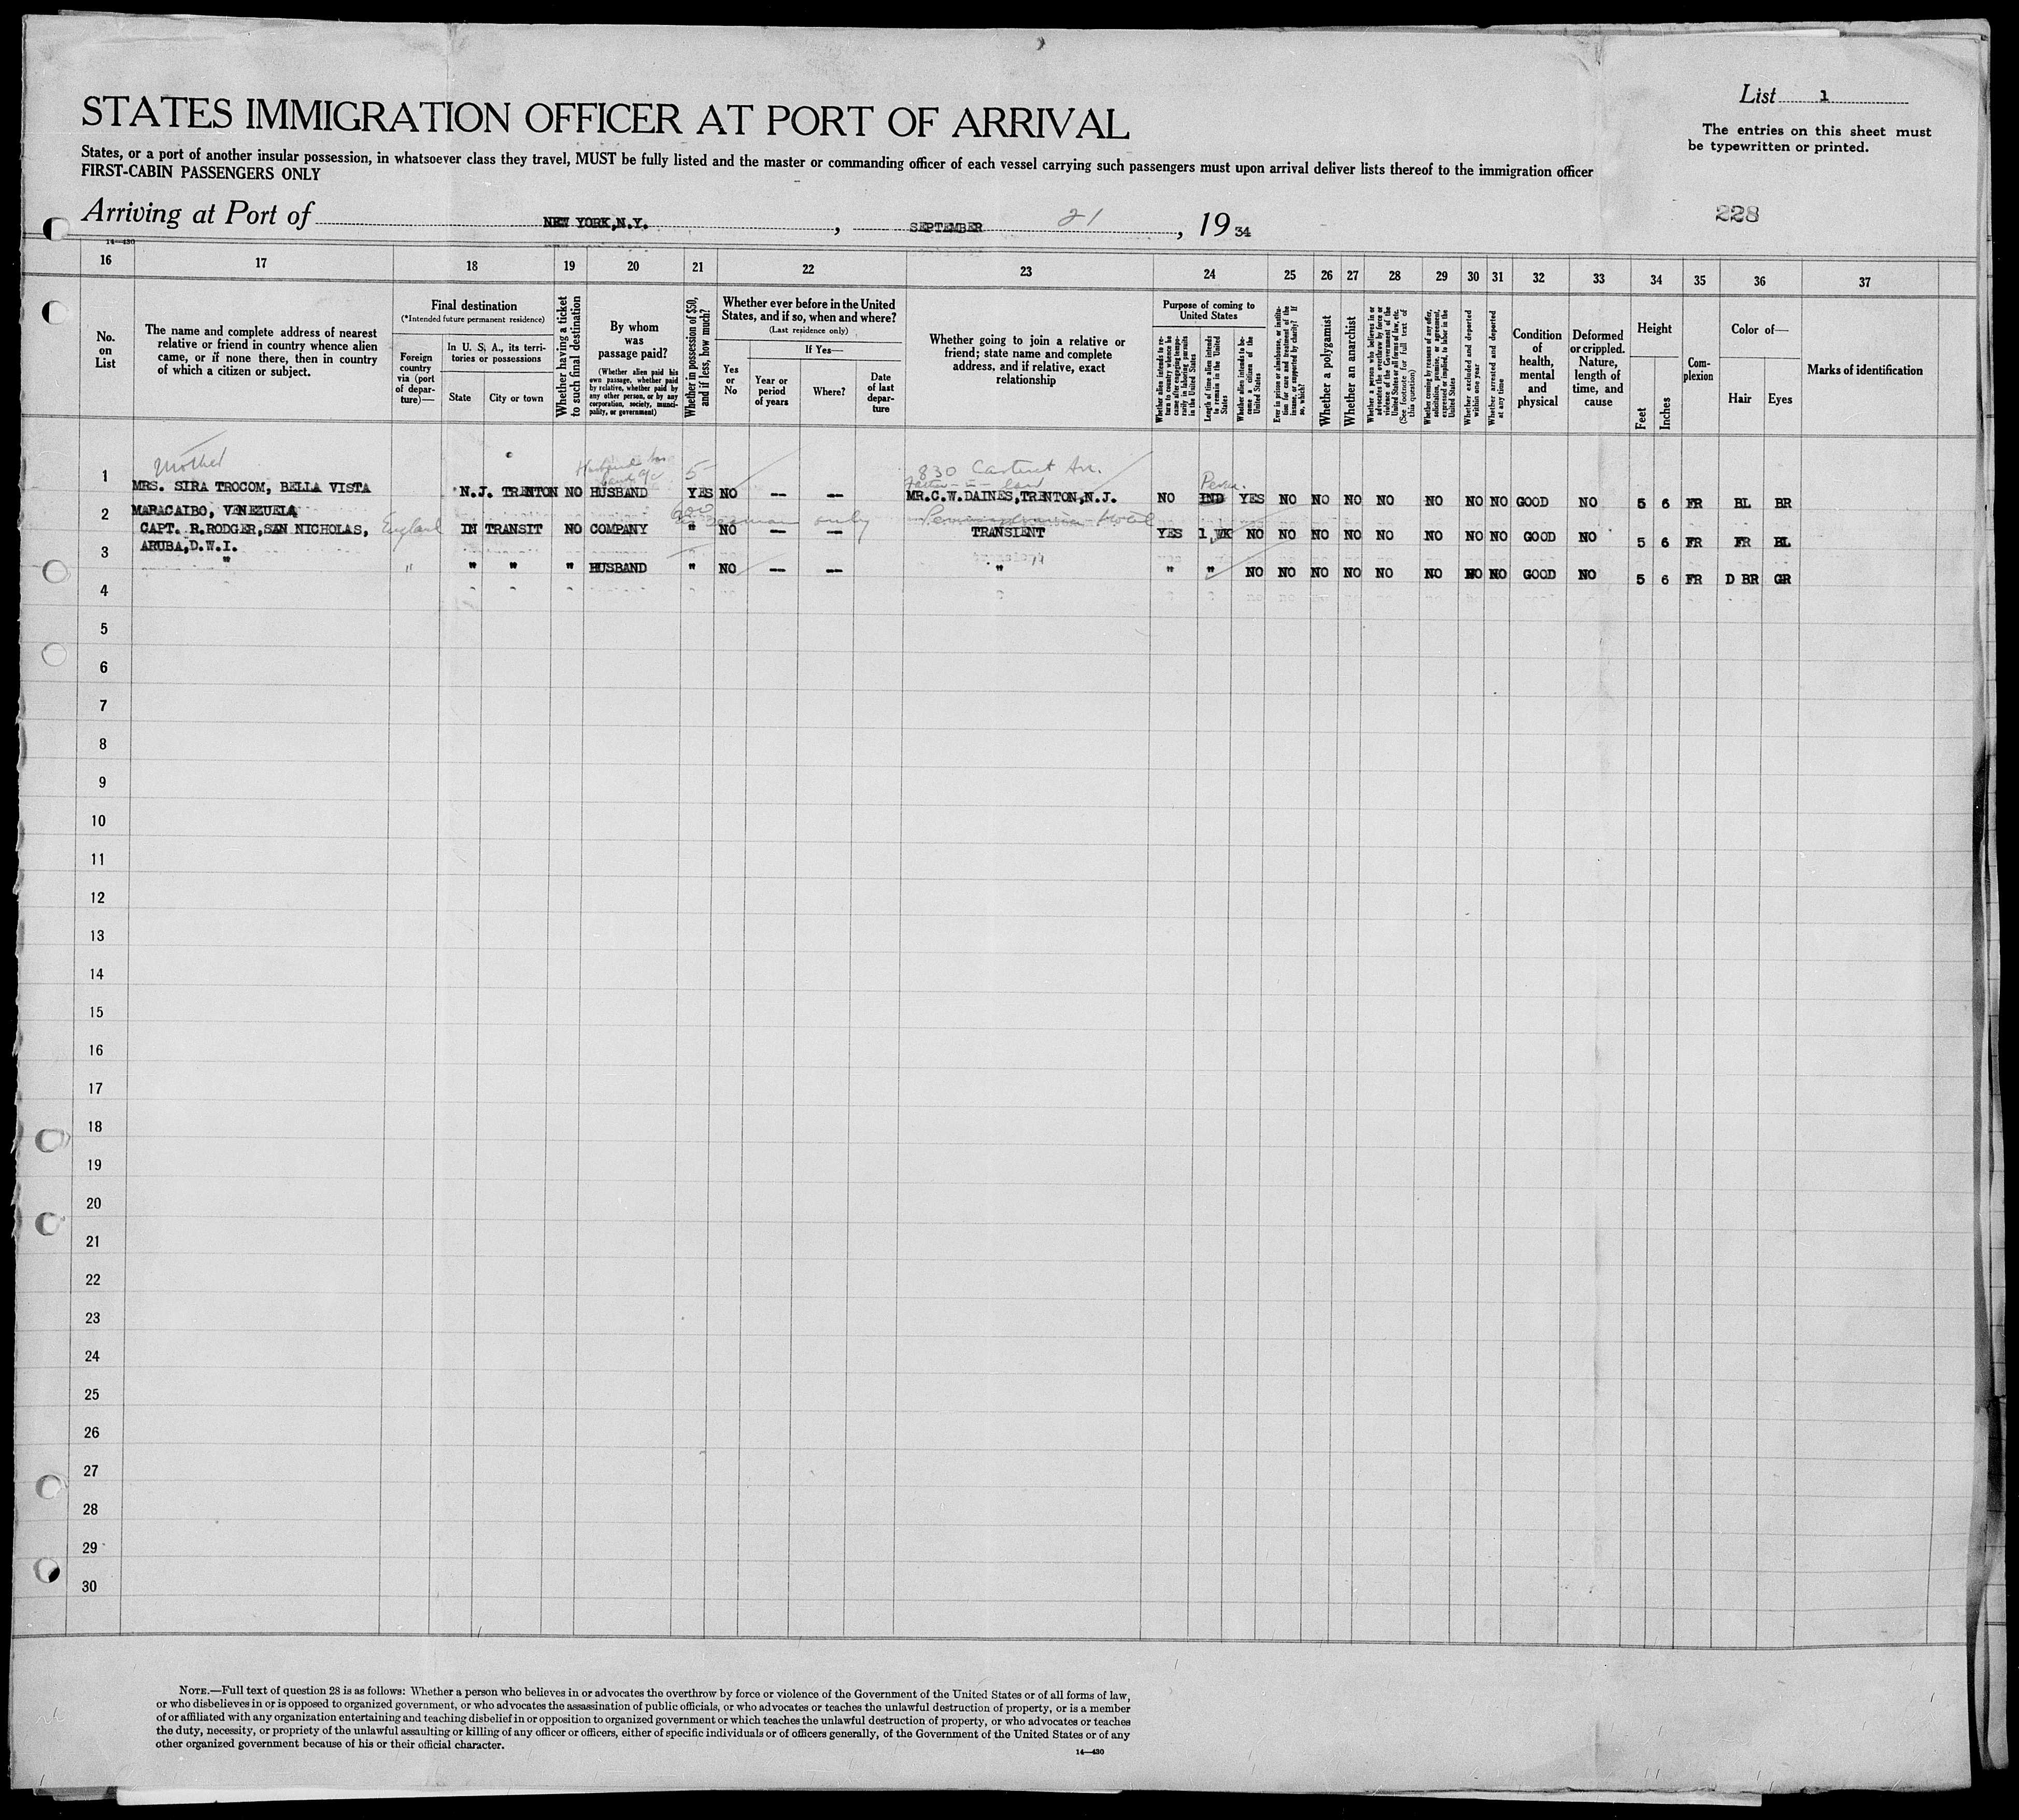 STATES IMMIGRATION OFFICER AT PORT OF ARRIVAL
List 1
The entries on this sheet must
be typewritten or printed.
States, or a port of another insular possession, in whatsoever class they travel, MUST be fully listed and the master or commanding officer of each vessel carrying such passengers must upon arrival deliver lists thereof to the immigration officer
FIRST-CABIN PASSENGERS ONLY
Arriving at Port of NEW YORK,N.Y. , SEPTEMBER 21 , 19 34
228
14—430
16 17 18 19 20 21 22 23 24 25 26 27 28 29 30 31 32 33 34 35 36 37
No.
on
List
The name and complete address of nearest
relative or friend in country whence alien
came, or if none there, then in country
of which a citizen or subject.
Final destination
(*Intended future permanent residence)
Foreign
country
via (port
of depar-
ture)—
In U. S. A., its terri-
tories or possessions
State
City or town
Whether having a ticket
to such final destination
By whom
was
passage paid?
(Whether alien paid his
own passage, whether paid
by relative, whether paid by
any other person, or by any
corporation, society, munci-
pality, or government)
Whether in possession of $50,
and if less, how much?
Whether ever before in the United
States, and if so, when and where?
(Last residence only)
Yes
or
No
If Yes—
Year or
period
of years
Where?
Date
of last
depar-
ture
Whether going to join a relative or
friend; state name and complete
address, and if relative, exact
relationship
Purpose of coming to
United States
Whether alien intends to re-
turn to country whence he
came after engaging tempo-
rarily in laboring pursuits
in the United States
Length of time alien intends
to remain in the United
States
Whether alien intends to be-
come a citizen of the
United States
Ever in prison or almshouse, or institu-
tion for care and treatment of the
insane, or supported by charity? If
so, which?
Whether a polygamist
Whether an anarchist
Whether a person who believes in or
advocates the overthrow by force or
violence of the Government of the
United States or all forms of law, etc.
(See footnote for full text of
this question)
Whether coming by reason of any offer,
solicitation, promise, or agreement,
expressed or implied, to labor in the
United States
Whether excluded and deported
within one year
Whether arrested and deported
at any time
Condition
of
health,
mental
and
physical
Deformed
or crippled.
Nature,
length of
time, and
cause
Height
Feet
Inches
Com-
plexion
Color of—
Hair
Eyes
Marks of identification
Mother
Husband
5
830 Carteret Av.
Father-in-law
Perm.
1 MRS. SIRA TROCOM, BELLA VISTA N.J. TRENTON NO HUSBAND YES NO — — MR.C.W.DAINES,TRENTON,N.J. NO IND YES NO NO NO NO NO NO NO GOOD NO 5 6 FR BL BR
MARACAIBO, VENEZUELA
600 only Pennsylvania Hotel
2 CAPT. R.RODGER,SAN NICHOLAS, England IN TRANSIT NO COMPANY " NO — — TRANSIENT YES 1 WK NO NO NO NO NO NO NO NO GOOD NO 5 6 FR FR BL
ARUBA,D.W.I.
3 " " " " " HUSBAND " NO — — " " " NO NO NO NO NO NO NO NO GOOD NO 5 6 FR D BR GR
4
5
6
7
8
9
10
11
12
13
14
15
16
17
18
19
20
21
22
23
24
25
26
27
28
29
30
NOTE.—Full text of question 28 is as follows: Whether a person who believes in or advocates the overthrow by force or violence of the Government of the United States or of all forms of law,
or who disbelieves in or is opposed to organized government, or who advocates the assassination of public officials, or who advocates or teaches the unlawful destruction of property, or is a member
of or affiliated with any organization entertaining and teaching disbelief in or opposition to organized government or which teaches the unlawful destruction of property, or who advocates or teaches
the duty, necessity, or propriety of the unlawful assaulting or killing of any officer or officers, either of specific individuals or of officers generally, of the Government of the United States or of any
other organized government because of his or their official character.
14—430